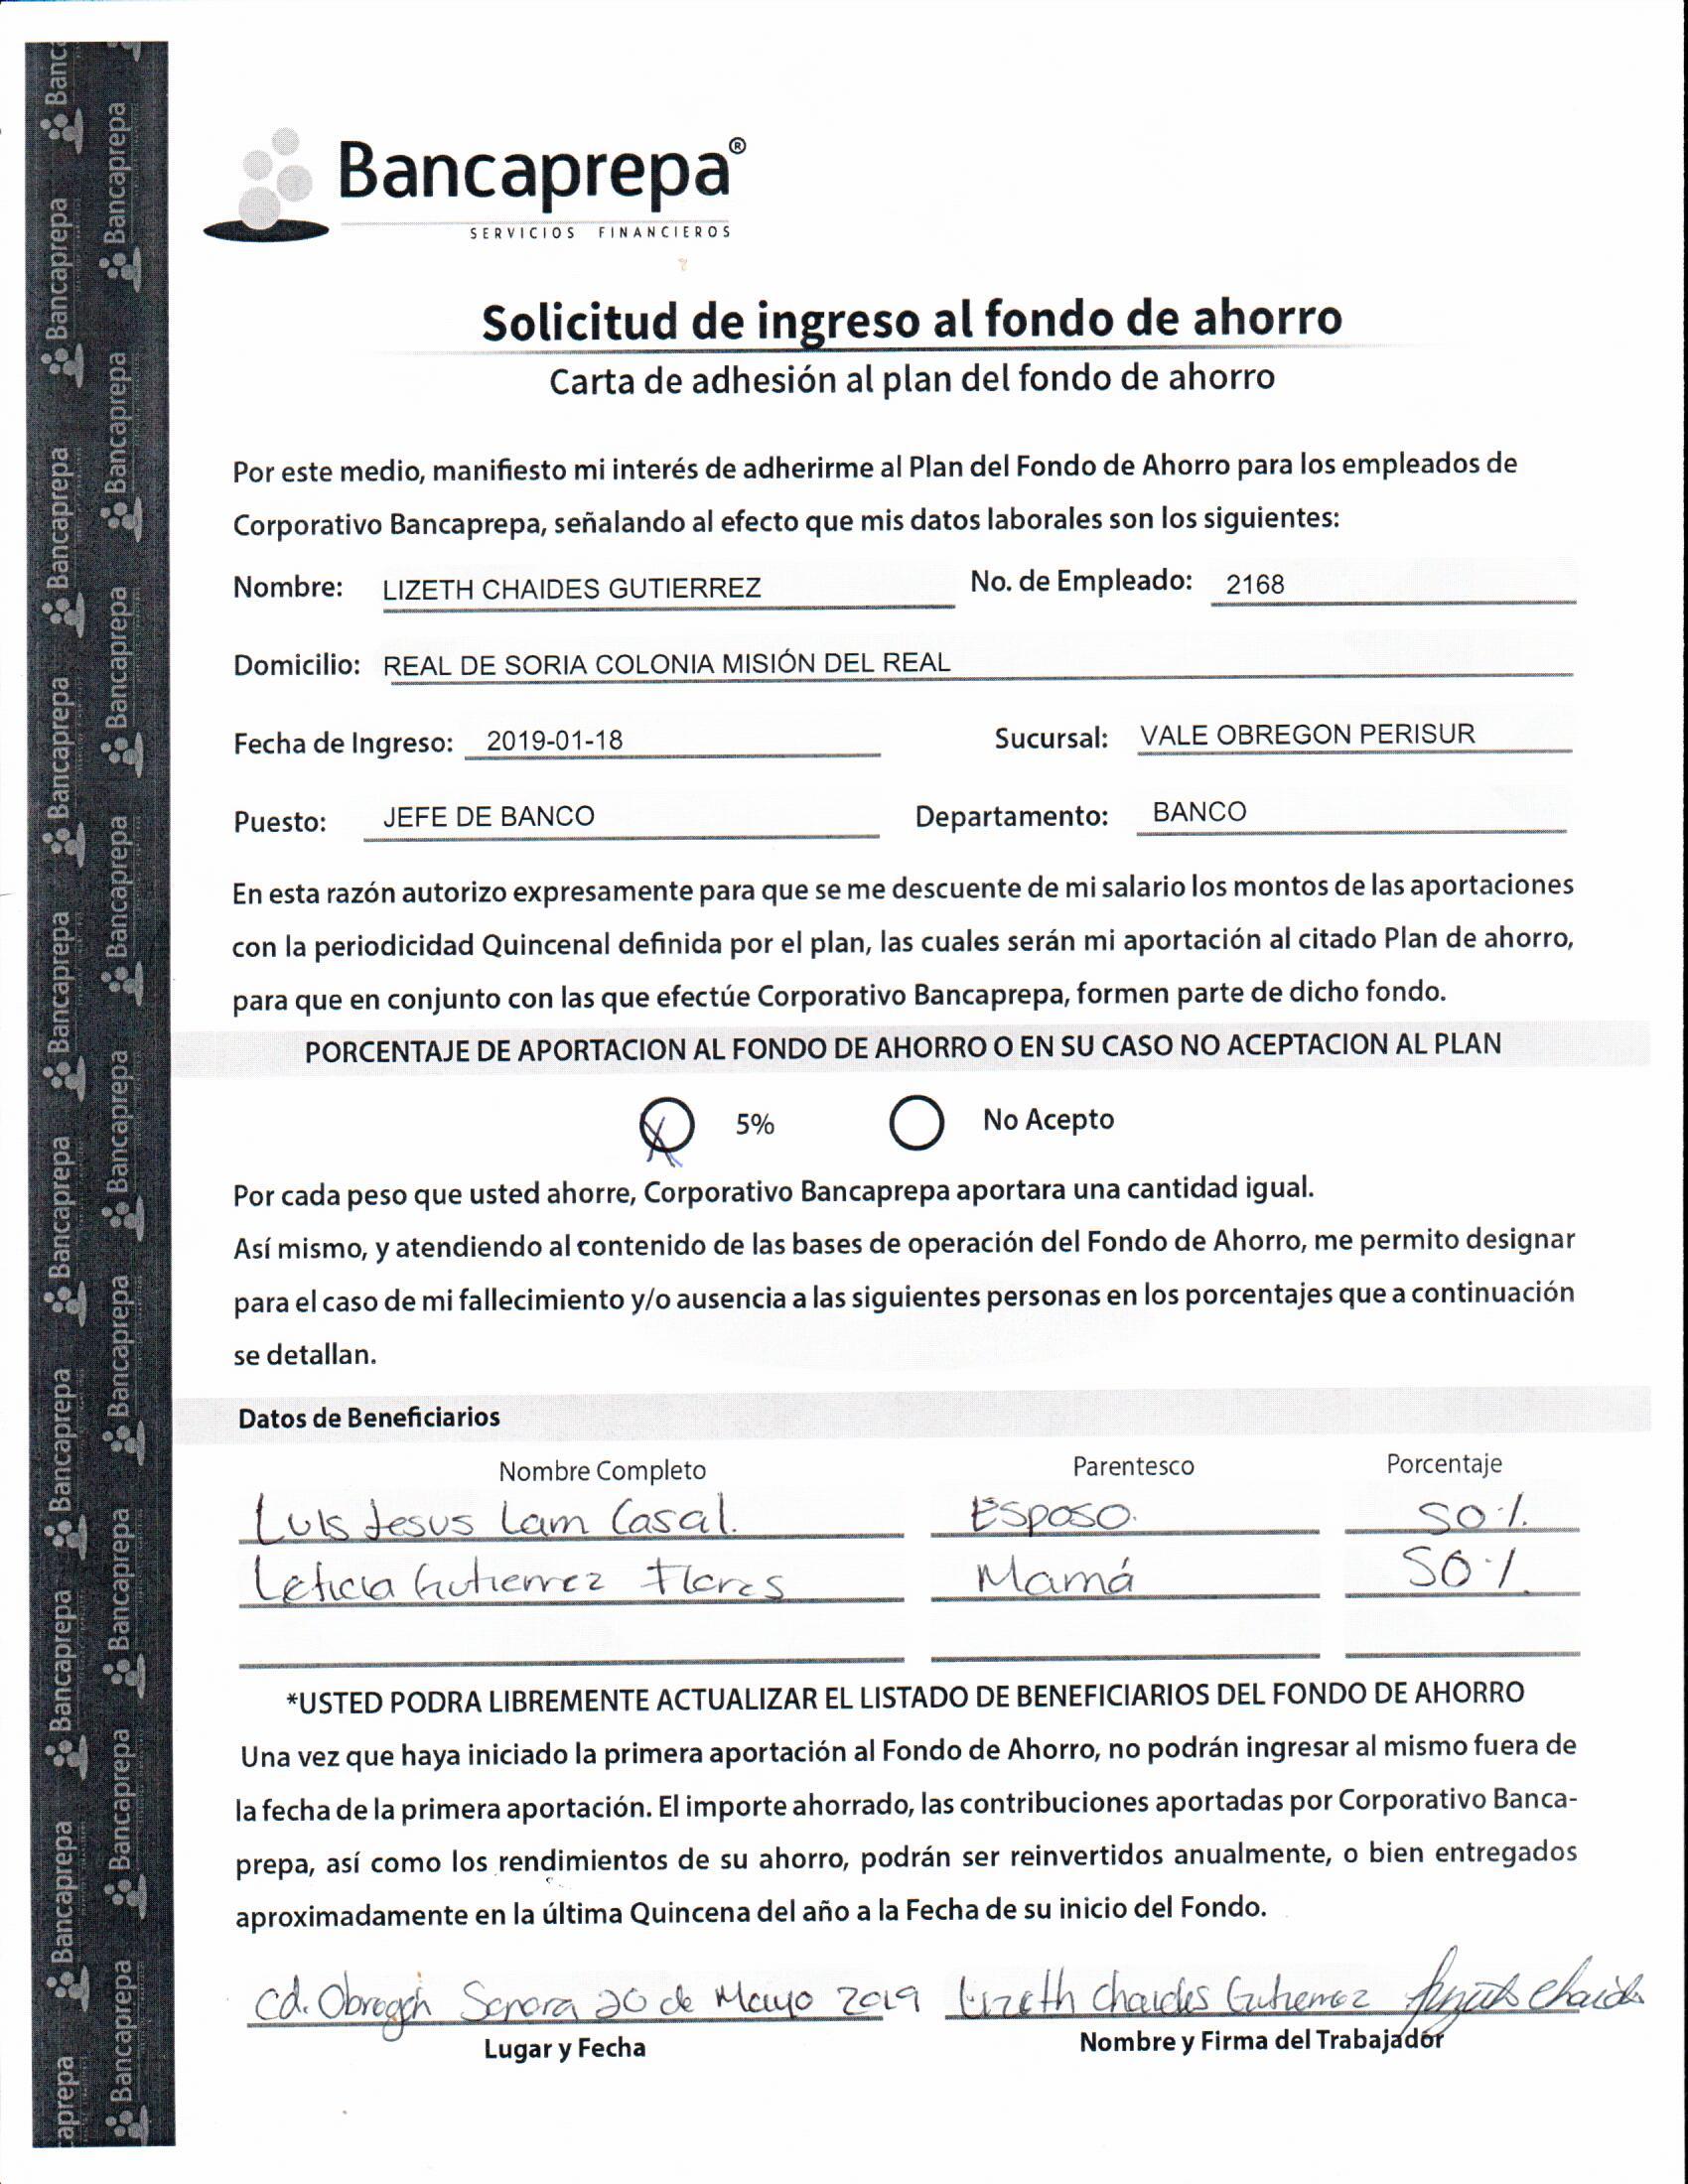 Bancaprepa®
SERVICIOS FINANCIEROS
Solicitud de ingreso al fondo de ahorro
Carta de adhesión al plan del fondo de ahorro
Por este medio, manifiesto mi interés de adherirme al Plan del Fondo de Ahorro para los empleados de
Corporativo Bancaprepa, señalando al efecto que mis datos laborales son los siguientes:
Nombre: LIZETH CHAIDES GUTIERREZ No. de Empleado: 2168
Domicilio: REAL DE SORIA COLONIA MISIÓN DEL REAL
Fecha de Ingreso: 2019-01-18 Sucursal: VALE OBREGON PERISUR
Puesto: JEFE DE BANCO Departamento: BANCO
En esta razón autorizo expresamente para que se me descuente de mi salario los montos de las aportaciones
con la periodicidad Quincenal definida por el plan, las cuales serán mi aportación al citado Plan de ahorro,
para que en conjunto con las que efectúe Corporativo Bancaprepa, formen parte de dicho fondo.
PORCENTAJE DE APORTACION AL FONDO DE AHORRO O EN SU CASO NO ACEPTACION AL PLAN
X 5% No Acepto
Por cada peso que usted ahorre, Corporativo Bancaprepa aportara una cantidad igual.
Así mismo, y atendiendo al contenido de las bases de operación del Fondo de Ahorro, me permito designar
para el caso de mi fallecimiento y/o ausencia a las siguientes personas en los porcentajes que a continuación
se detallan.
Datos de Beneficiarios
Nombre Completo Parentesco Porcentaje
Luis Jesus Lam Casal. Esposo. 50%.
Leticia Gutierrez Flores Mamá 50%
*USTED PODRA LIBREMENTE ACTUALIZAR EL LISTADO DE BENEFICIARIOS DEL FONDO DE AHORRO
Una vez que haya iniciado la primera aportación al Fondo de Ahorro, no podrán ingresar al mismo fuera de
la fecha de la primera aportación. El importe ahorrado, las contribuciones aportadas por Corporativo Banca-
prepa, así como los rendimientos de su ahorro, podrán ser reinvertidos anualmente, o bien entregados
aproximadamente en la última Quincena del año a la Fecha de su inicio del Fondo.
Cd. Obregón Sonora 20 de Mayo 2019 Lizeth Chaides Gutierrez
Lugar y Fecha Nombre y Firma del Trabajador